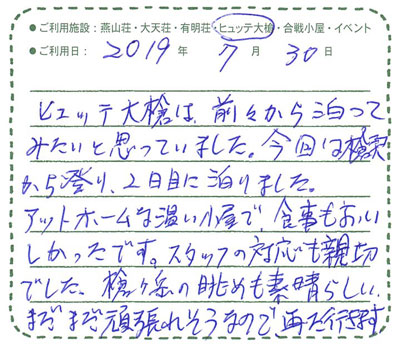 ●ご利用施設：燕山荘・大天荘・有明荘・ヒュッテ大槍・合戦小屋・イベント
●ご利用日： 2019 年 7 月 30 日
ヒュッテ大槍は、前々から泊って
みたいと思っていました。今回は槍沢
から登り、2日目に泊りました。
アットホームな温い小屋で 食事もおい
しかったです。スタッフの対応も親切
でした、槍ヶ岳の眺めも素晴らしい、
まだまだ頑張れそうなので 再た行きます